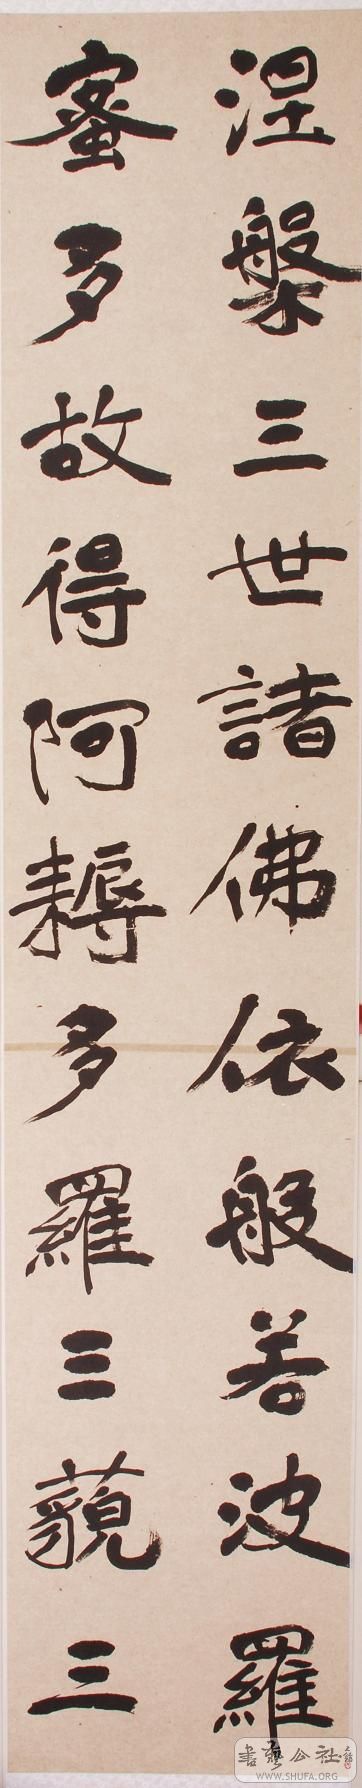 涅槃三世諸佛依般若波羅
蜜多故得阿耨多羅三藐三
書艺公社
WWW.SHUFA.ORG